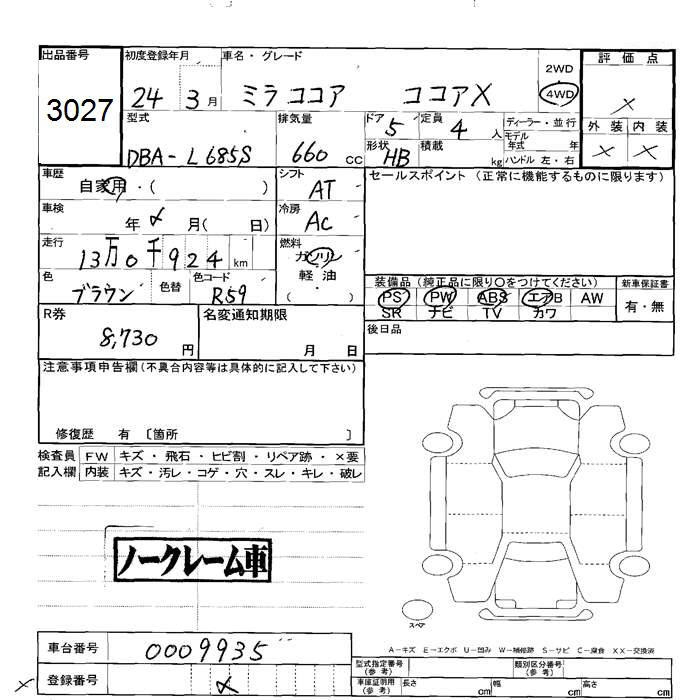 出品番号
3027
初度登録年月
24 3月
車名・グレード
ミラココア ココアX
2WD
4WD
評価点
×
外装 内装
× ×
型式
DBA-L685S
排気量
660 CC
ドア
5
定員
4人
ディーラー・並行
モデル年式 年
形状
HB
積載
kg
ハンドル 左・右
車歴
自家用・( )
シフト
AT
セールスポイント (正常に機能するものに限ります)
車検
年 メ 月( 日)
冷房
AC
走行
13万0千924km
燃料
ガソリン
軽油
( )
色
ブラウン
色替
色コード
R59
装備品 (純正品に限り〇をつけてください)
PS PW ABS エアB AW
SR ナビ TV カワ
新車保証書
有・無
R券
8,730円
名変通知期限
月 日
後日品
注意事項申告欄(不具合内容等は具体的に記入して下さい)
修復歴 有 〔箇所 〕
検査員記入欄
FW キズ・飛石・ヒビ割・リペア跡・×要
内装 キズ・汚レ・コゲ・穴・スレ・キレ・破レ
ノークレーム車
スペア
A-キズ E-エクボ U-凹み W-補修跡 S-サビ C-腐食 XX-交換済
車台番号
0009935
× 登録番号
メ
型式指定番号(参考)
類別区分番号(参考)
車庫証明用(参考) 長さ cm 幅 cm 高さ cm